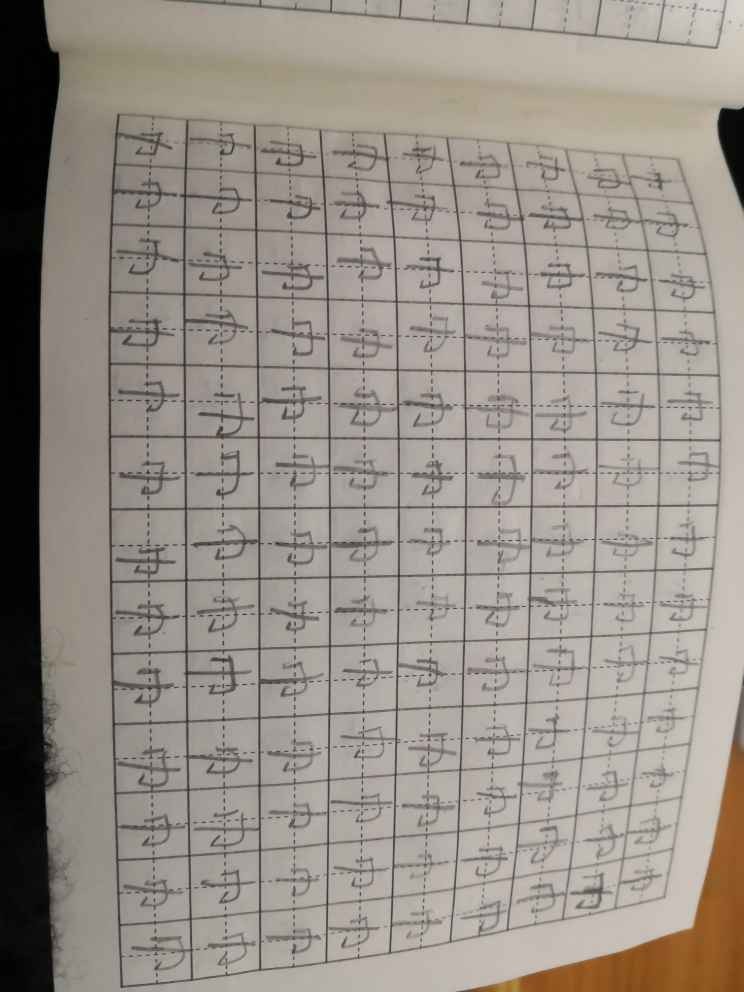 巾巾巾巾巾巾巾巾巾巾巾巾巾
巾巾巾巾巾巾巾巾巾巾巾巾巾
巾巾巾巾巾巾巾巾巾巾巾巾巾
巾巾巾巾巾巾巾巾巾巾巾巾巾
巾巾巾巾巾巾巾巾巾巾巾巾巾
巾巾巾巾巾巾巾巾巾巾巾巾巾
巾巾巾巾巾巾巾巾巾巾巾巾巾
巾巾巾巾巾巾巾巾巾巾巾巾巾
巾巾巾巾巾巾巾巾巾巾巾巾巾